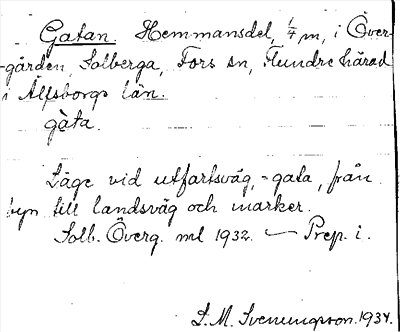 Gatan. Hemmansdel, 1/4 m, i Över-
-gården, Solberga, Fors sn, Flundre härad
i Älfsborgs län.
gàta.
Läge vid utfartsväg, -gata, från
byn till landsväg och marker.
Solb. Överg. ml 1932. — Prep. i.
S. M. Svenungsson. 1934.